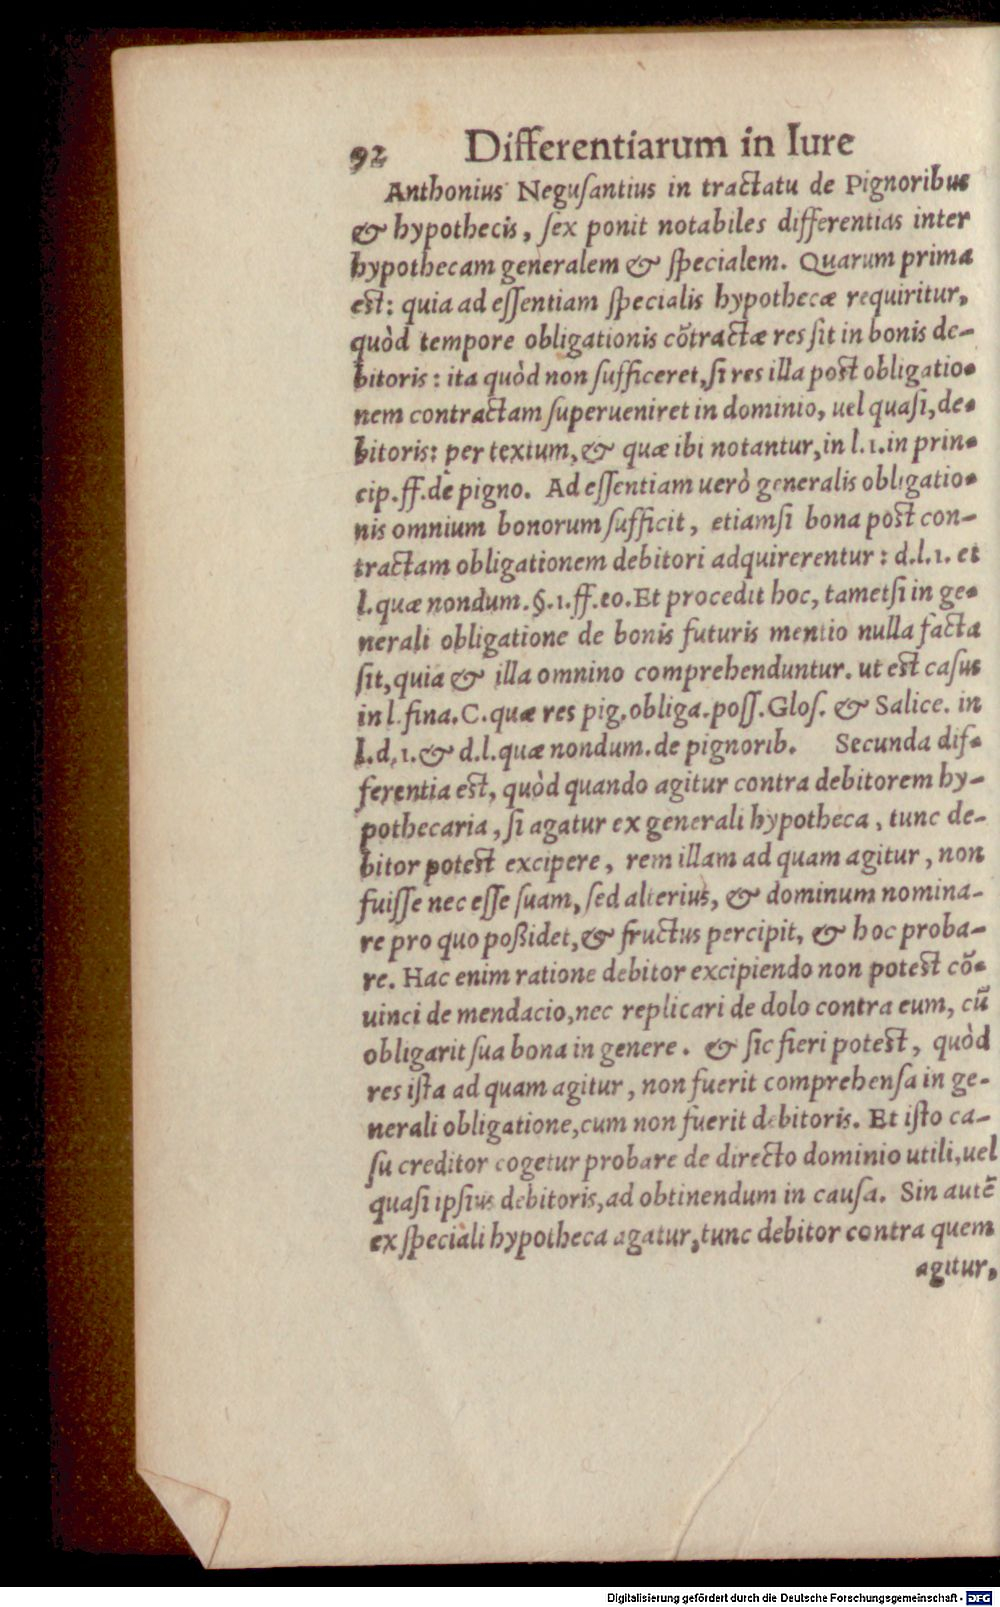 92 Differentiarum in Iure
Anthonius Neguſantius in tractatu de Pignoribus
& hypothecis, ſex ponit notabiles differentias inter
hypothecam generalem & ſpecialem. Quarum prima
est: quia ad eſſentiam ſpecialis hypothecæ requiritur,
quòd tempore obligationis cõtractæ res ſit in bonis de-
bitoris: ita quòd non ſufficeret, ſi res illa post obligatio-
nem contractam ſuperueniret in dominio, uel quaſi, de-
bitoris: per textum, & quæ ibi notantur, in l.1. in prin-
cip. ff. de pigno. Ad eſſentiam uerò generalis obligatio-
nis omnium bonorum ſufficit, etiamſi bona post con-
tractam obligationem debitori adquirerentur: d.l.1. et
l. quæ nondum. §.1. ff. eo. Et procedit hoc, tametſi in ge-
nerali obligatione de bonis futuris mentio nulla facta
ſit, quia & illa omnino comprehenduntur. ut est caſus
in l. fina. C. quæ res pig. obliga. poſſ. Gloſ. & Salice. in
l.d.1. & d.l. quæ nondum. de pignorib. Secunda dif-
ferentia est, quòd quando agitur contra debitorem hy-
pothecaria, ſi agatur ex generali hypotheca, tunc de-
bitor potest excipere, rem illam ad quam agitur, non
fuiſſe nec eſſe ſuam, ſed alterius, & dominum nomina-
re pro quo poßidet, & fructus percipit, & hoc proba-
re. Hac enim ratione debitor excipiendo non potest cõ-
uinci de mendacio, nec replicari de dolo contra eum, cũ
obligarit ſua bona in genere. & ſic fieri potest, quòd
res iſta ad quam agitur, non fuerit comprehenſa in ge-
nerali obligatione, cum non fuerit debitoris. Et iſto ca-
ſu creditor cogetur probare de directo dominio utili, uel
quaſi ipſius debitoris, ad obtinendum in cauſa. Sin autẽ
ex ſpeciali hypotheca agatur, tunc debitor contra quem
agitur,
Digitalisierung gefördert durch die Deutsche Forschungsgemeinschaft - DFG